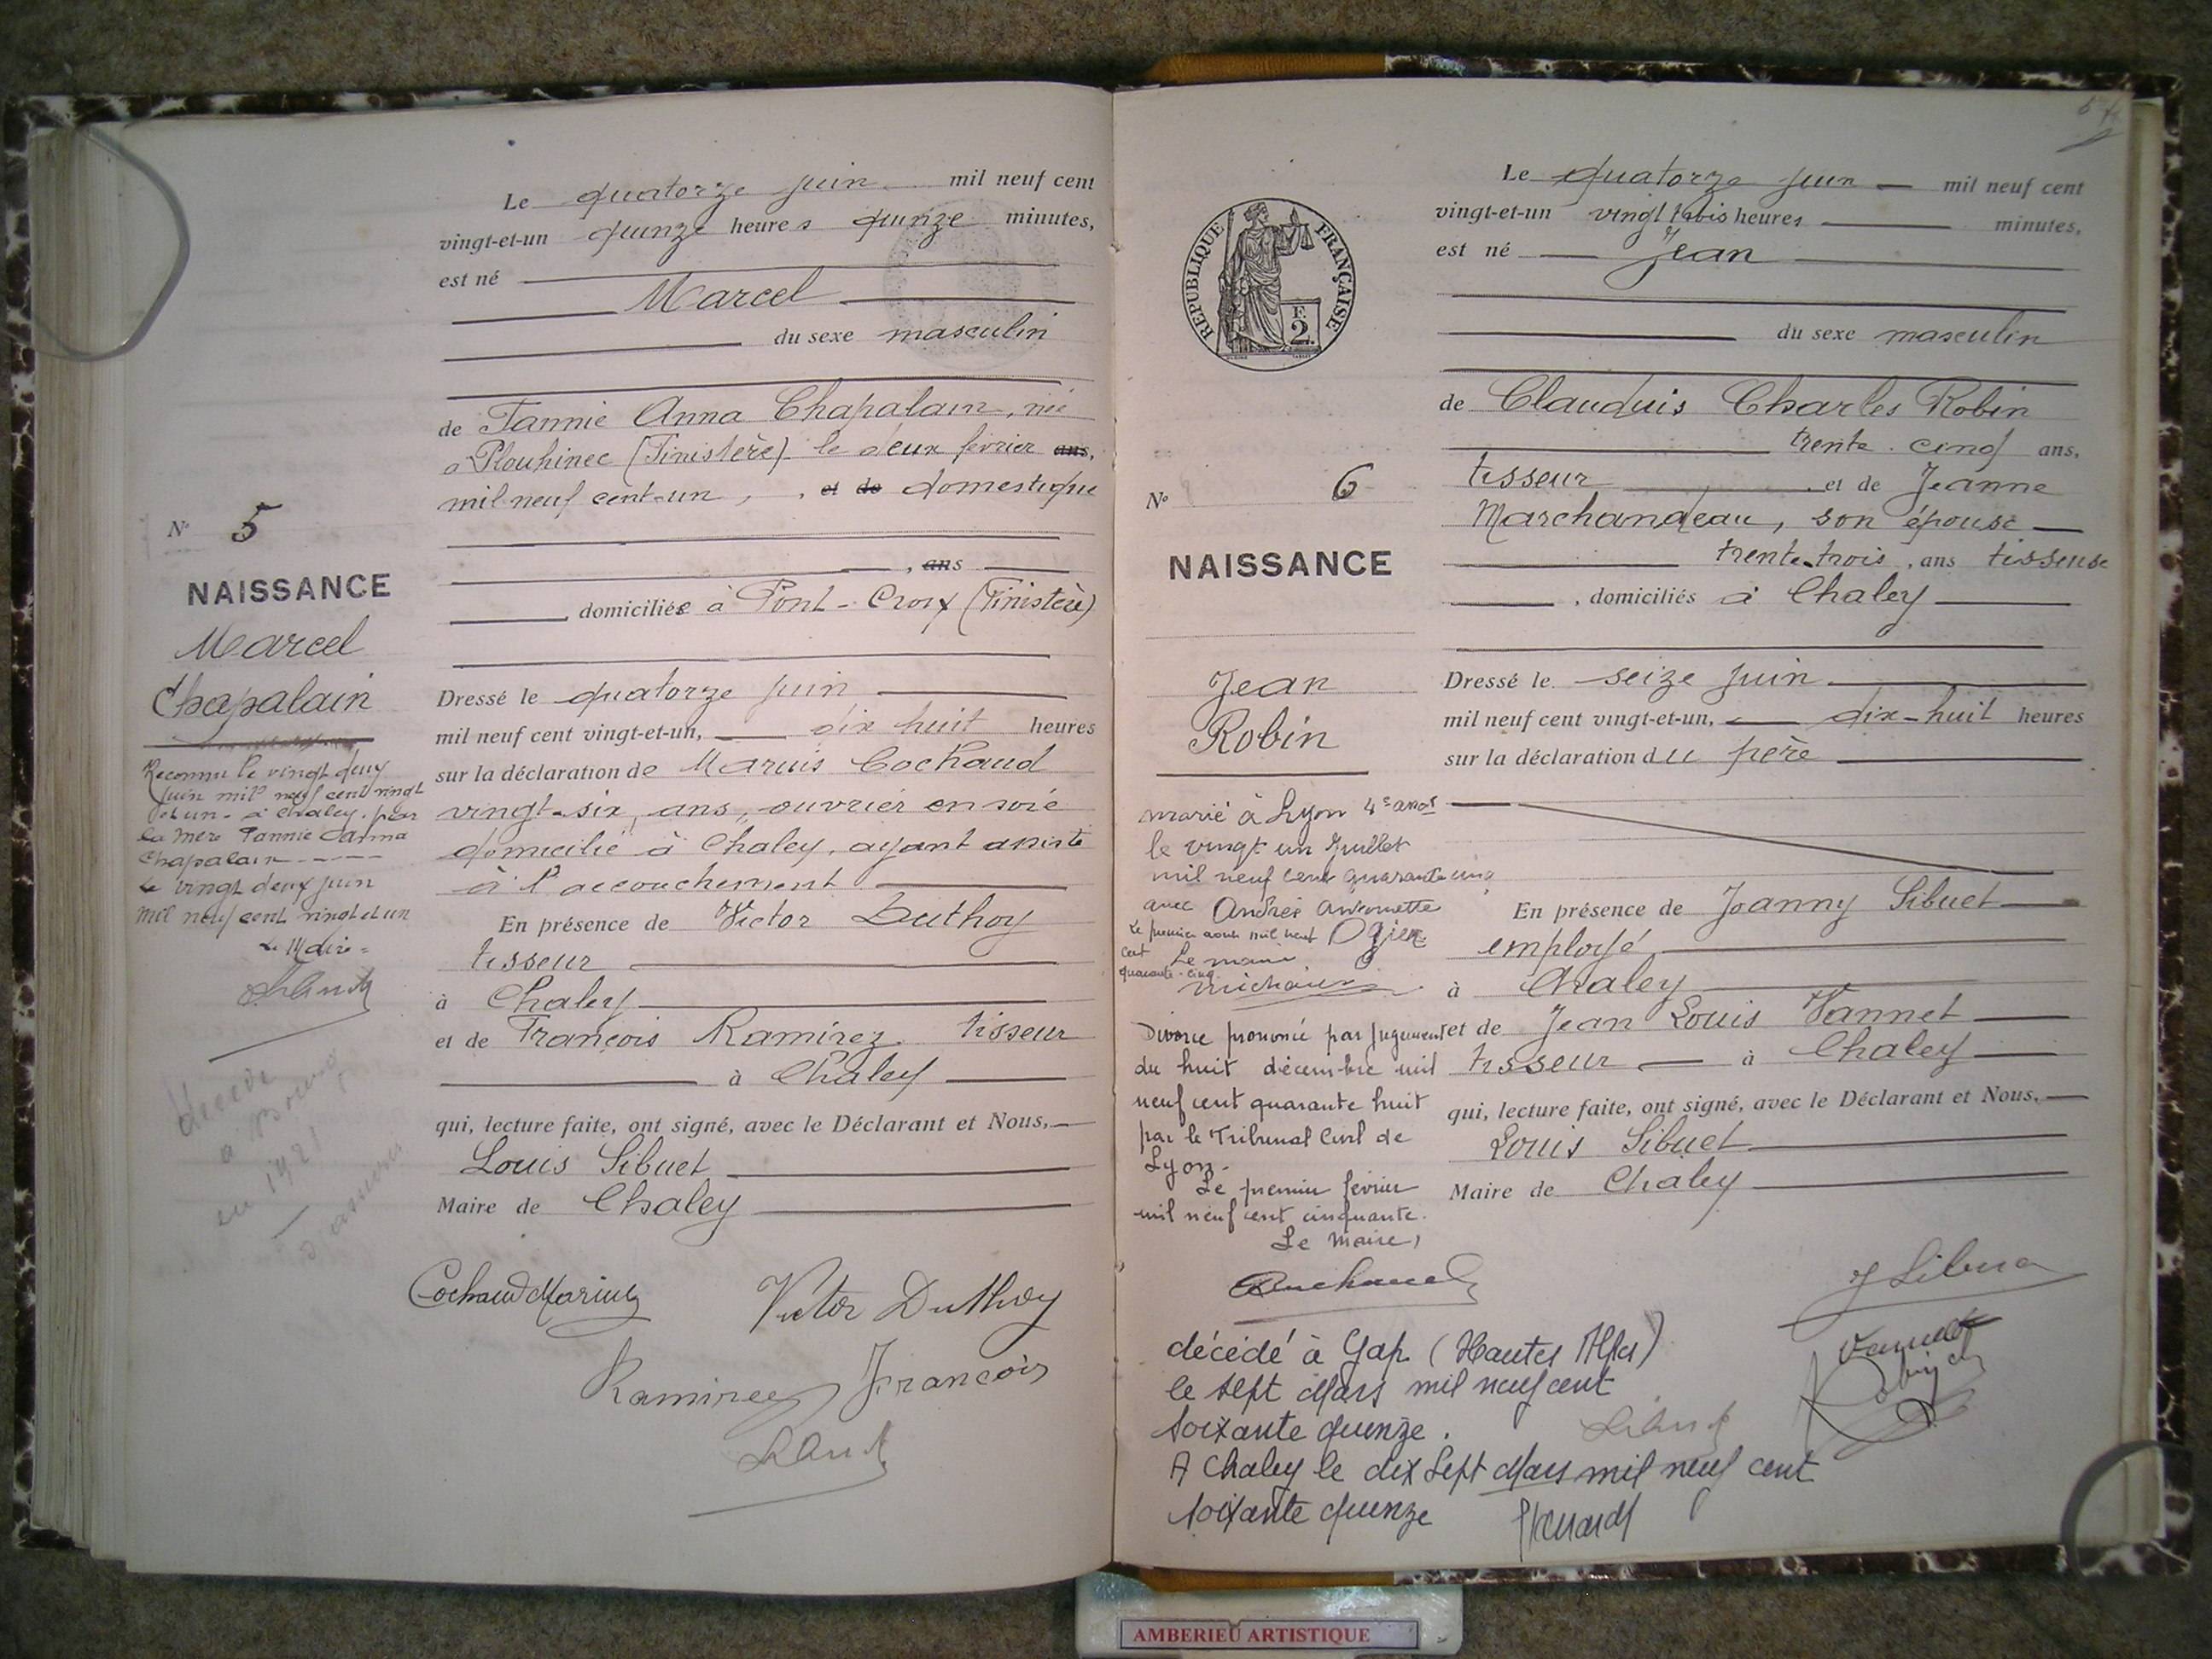 Le quatorze juin mil neuf cent
vingt-et-un quinze heures quinze minutes,
est né
Marcel
du sexe masculin
de Fannie Anna Chapalain, née
à Plouhinec (Finistère) le deux février ans,
mil neuf cent-un, , et de domestique
, ans
domiciliée à Pont-Croix (Finistère)
Nº 5
NAISSANCE
Marcel
Chapalain
Reconnu le vingt deux
juin mil neuf cent vingt
et un - à Chaley. par
la mère Fannie Anna
Chapalain ----
Le vingt deux juin
mil neuf cent vingt et un
Le Maire =
décédé
à
en 1921
Dressé le quatorze juin
mil neuf cent vingt-et-un, dix huit heures
sur la déclaration de Marius Cochaud
vingt-six ans, ouvrier en soie
domicilié à Chaley, ayant assisté
à l'accouchement
En présence de Victor Duthoy
tisseur
à Chaley
et de François Ramirez tisseur
à Chaley
qui, lecture faite, ont signé, avec le Déclarant et Nous,
Louis Sibuet
Maire de Chaley
Cochaud Marius Victor Duthoy
Ramirez François
Le quatorze juin mil neuf cent
vingt-et-un vingt trois heures minutes,
est né Jean
du sexe masculin
REPUBLIQUE FRANÇAISE
F.
2.
de Claudius Charles Robin
trente-cinq ans,
tisseur et de Jeanne
Marchandeau, son épouse
trente-trois, ans tisseuse
, domiciliés à Chaley
Nº 6
NAISSANCE
Jean
Robin
Dressé le seize juin
mil neuf cent vingt-et-un, dix-huit heures
sur la déclaration du père
marié à Lyon 4e arrt
le vingt un Juillet
mil neuf cent quarante cinq
avec Andrée Antoinette
Ogier
Le premier août mil neuf
cent
quarante-cinq
Le maire
Divorce prononcé par jugement
du huit décembre mil
neuf cent quarante huit
par le Tribunal Civil de
Lyon.
Le premier février
mil neuf cent cinquante.
Le Maire,
En présence de Joanny Sibuet
employé
à Chaley
et de Jean Louis Vannet
tisseur à Chaley
qui, lecture faite, ont signé, avec le Déclarant et Nous,
Louis Sibuet
Maire de Chaley
décédé à Gap (Hautes Alpes)
le sept Mars mil neuf cent
soixante quinze.
A Chaley le dix sept Mars mil neuf cent
soixante quinze
AMBERIEU ARTISTIQUE